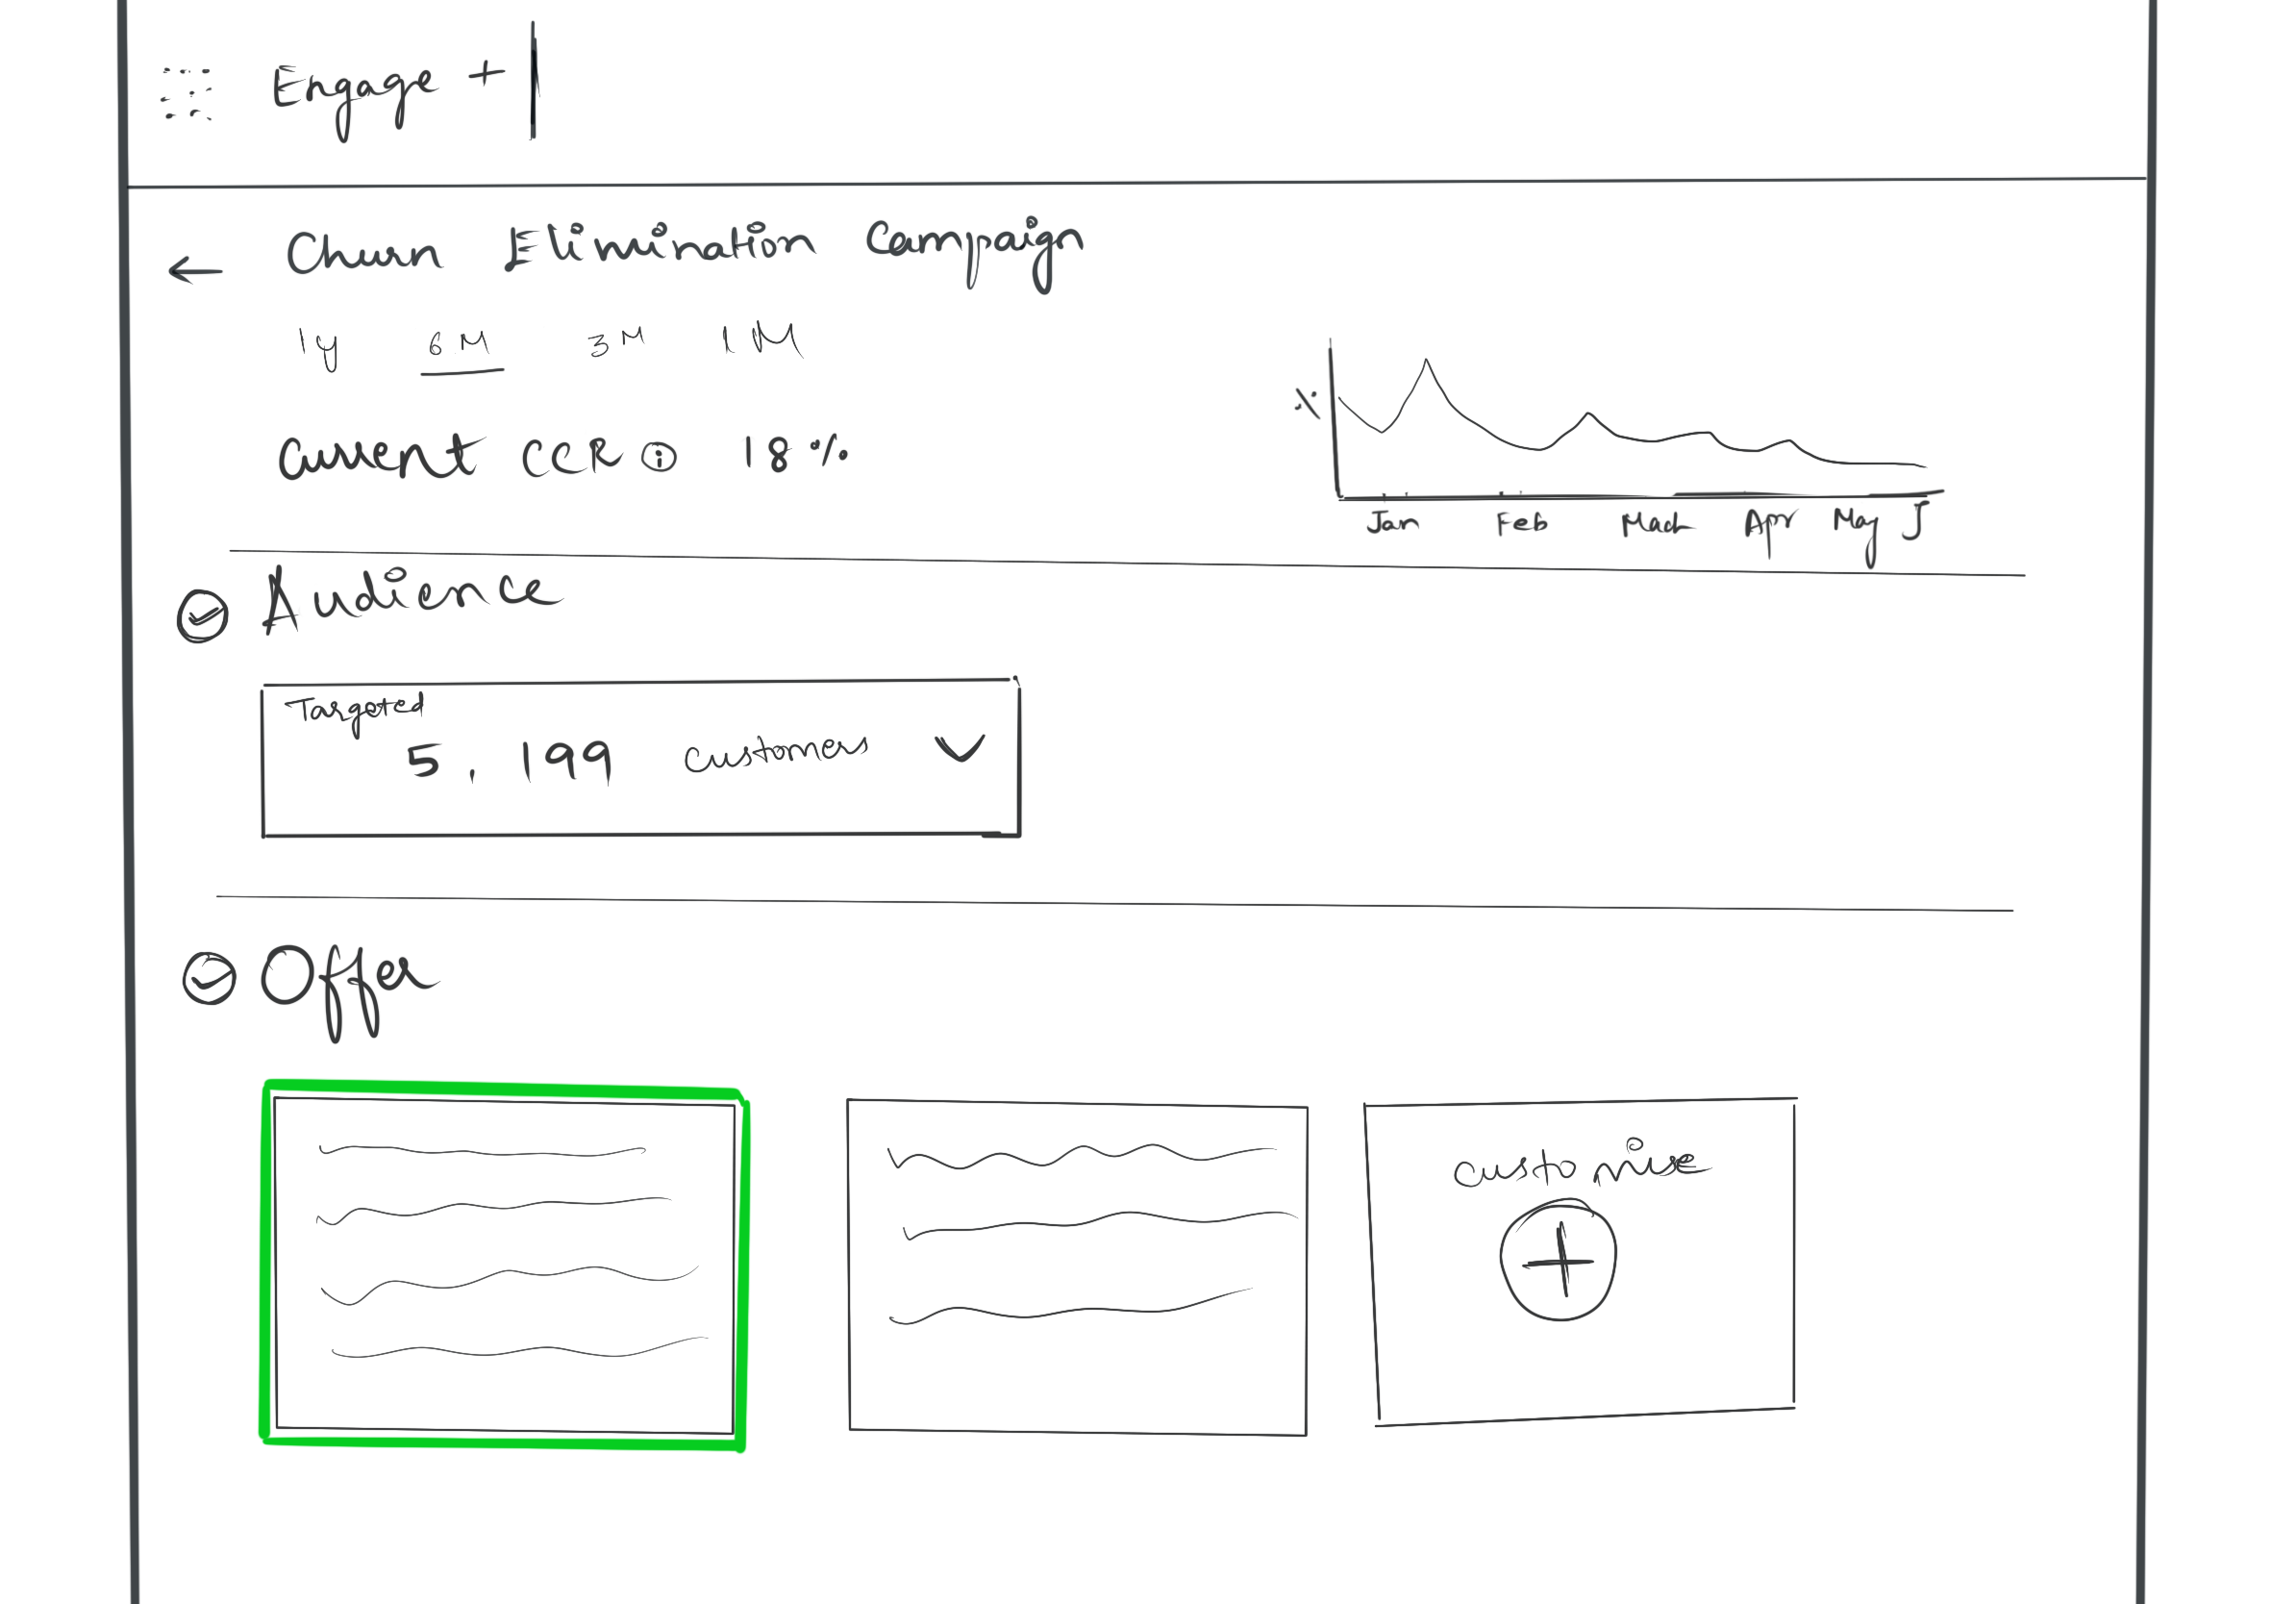 Engage +
Churn Elimination Campaign
1y 6M 3M 1M
Current CCR i 18%
%
Jan Feb March Apr May J
Audience
Targeted
5,199 customers
Offer
customise
+